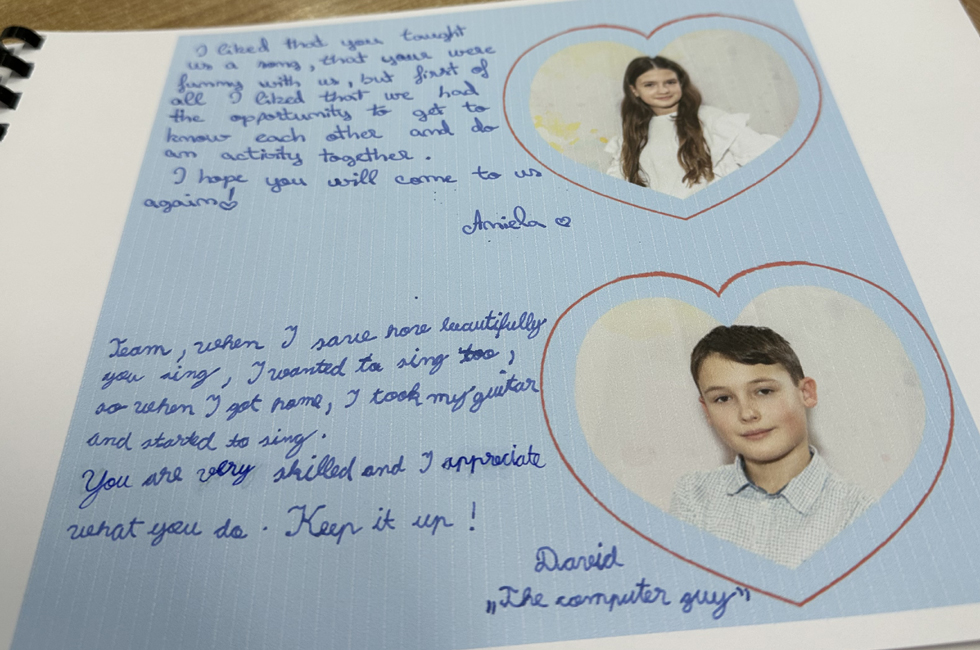 I liked that you taught
us a song, that your were
funny with us, but first of
all I liked that we had
the opportunity to get to
know each other and do
an activity together.
I hope you will come to us
again!
Aniela
Team, when I saw how beautifully
you sing, I wanted to sing too,
so when I got home, I took my guitar
and started to sing.
You are very skilled and I appreciate
what you do. Keep it up!
David
„The computer guy”